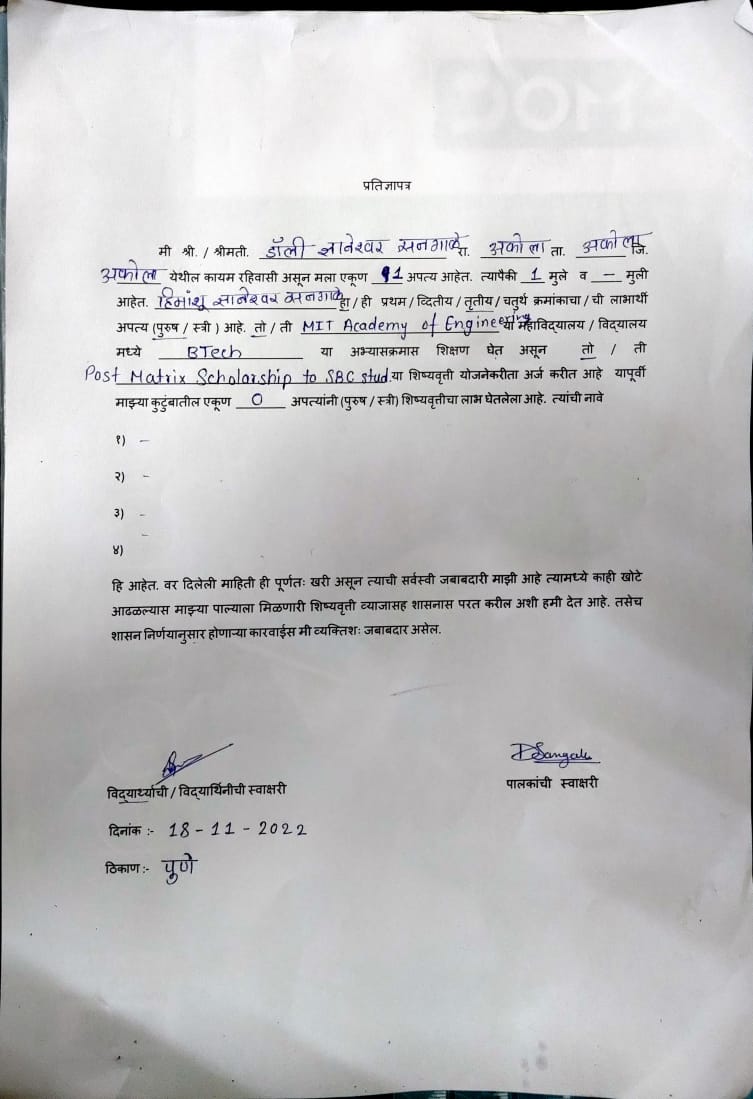 प्रतिज्ञापत्र
मी श्री. / श्रीमती. डॉली ज्ञानेश्वर सनगाळे रा. अकोला ता. अकोला जि.
अकोला येथील कायम रहिवासी असून मला एकूण 1 अपत्य आहेत. त्यापैकी 1 मुले व - मुली
आहेत. हिमांशू ज्ञानेश्वर सनगाळे हा / ही प्रथम / व्दितीय / तृतीय / चतुर्थ क्रमांकाचा / ची लाभार्थी
अपत्य (पुरुष / स्त्री ) आहे. तो / ती MIT Academy of Engineering या महाविद्यालय / विद्यालय
मध्ये BTech या अभ्यासक्रमास शिक्षण घेत असून तो / ती
Post Matrix Scholarship to SBC stud. या शिष्यवृत्ती योजनेकरीता अर्ज करीत आहे यापूर्वी
माझ्या कुटुंबातील एकूण 0 अपत्यांनी (पुरुष / स्त्री) शिष्यवृत्तीचा लाभ घेतलेला आहे. त्यांची नावे
१) -
२) -
३) -
४) -
हि आहेत. वर दिलेली माहिती ही पूर्णतः खरी असून त्याची सर्वस्वी जबाबदारी माझी आहे त्यामध्ये काही खोटे
आढळल्यास माझ्या पाल्याला मिळणारी शिष्यवृत्ती व्याजासह शासनास परत करील अशी हमी देत आहे. तसेच
शासन निर्णयानुसार होणाऱ्या कारवाईस मी व्यक्तिशः जबाबदार असेल.
DSangale
विद्यार्थ्याची / विद्यार्थिनीची स्वाक्षरी पालकांची स्वाक्षरी
दिनांक :- 18-11-2022
ठिकाण :- पुणे